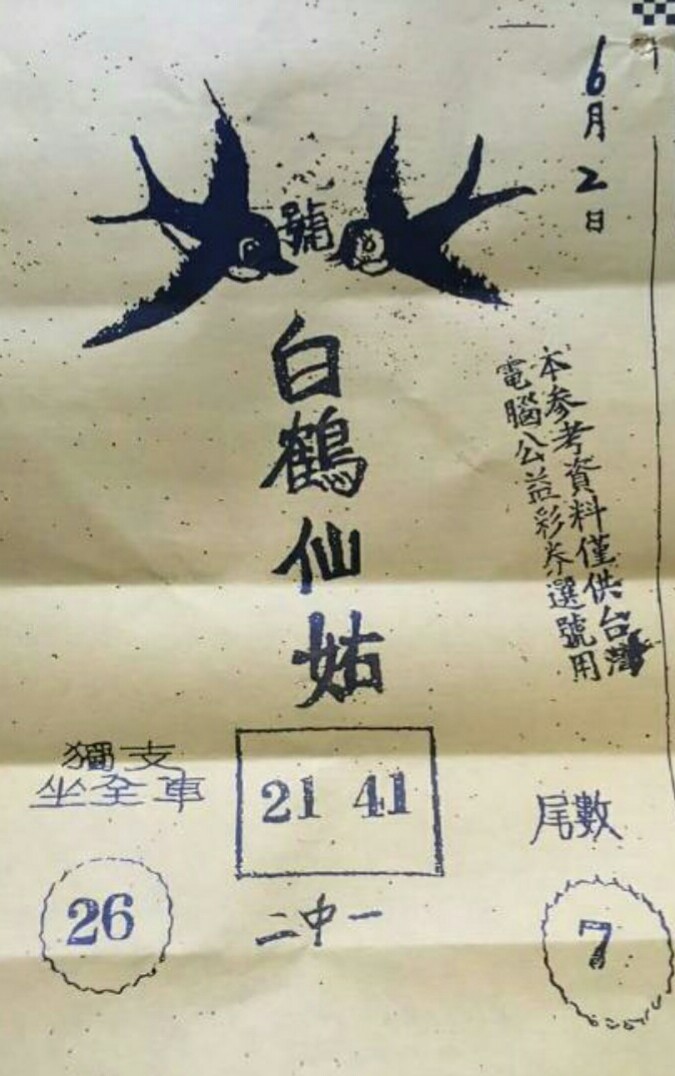 6月2日
號
白鶴仙姑
本參考資料僅供台灣
電腦公益彩券選號用
獨支
坐全車
26
21 41
二中一
尾數
7